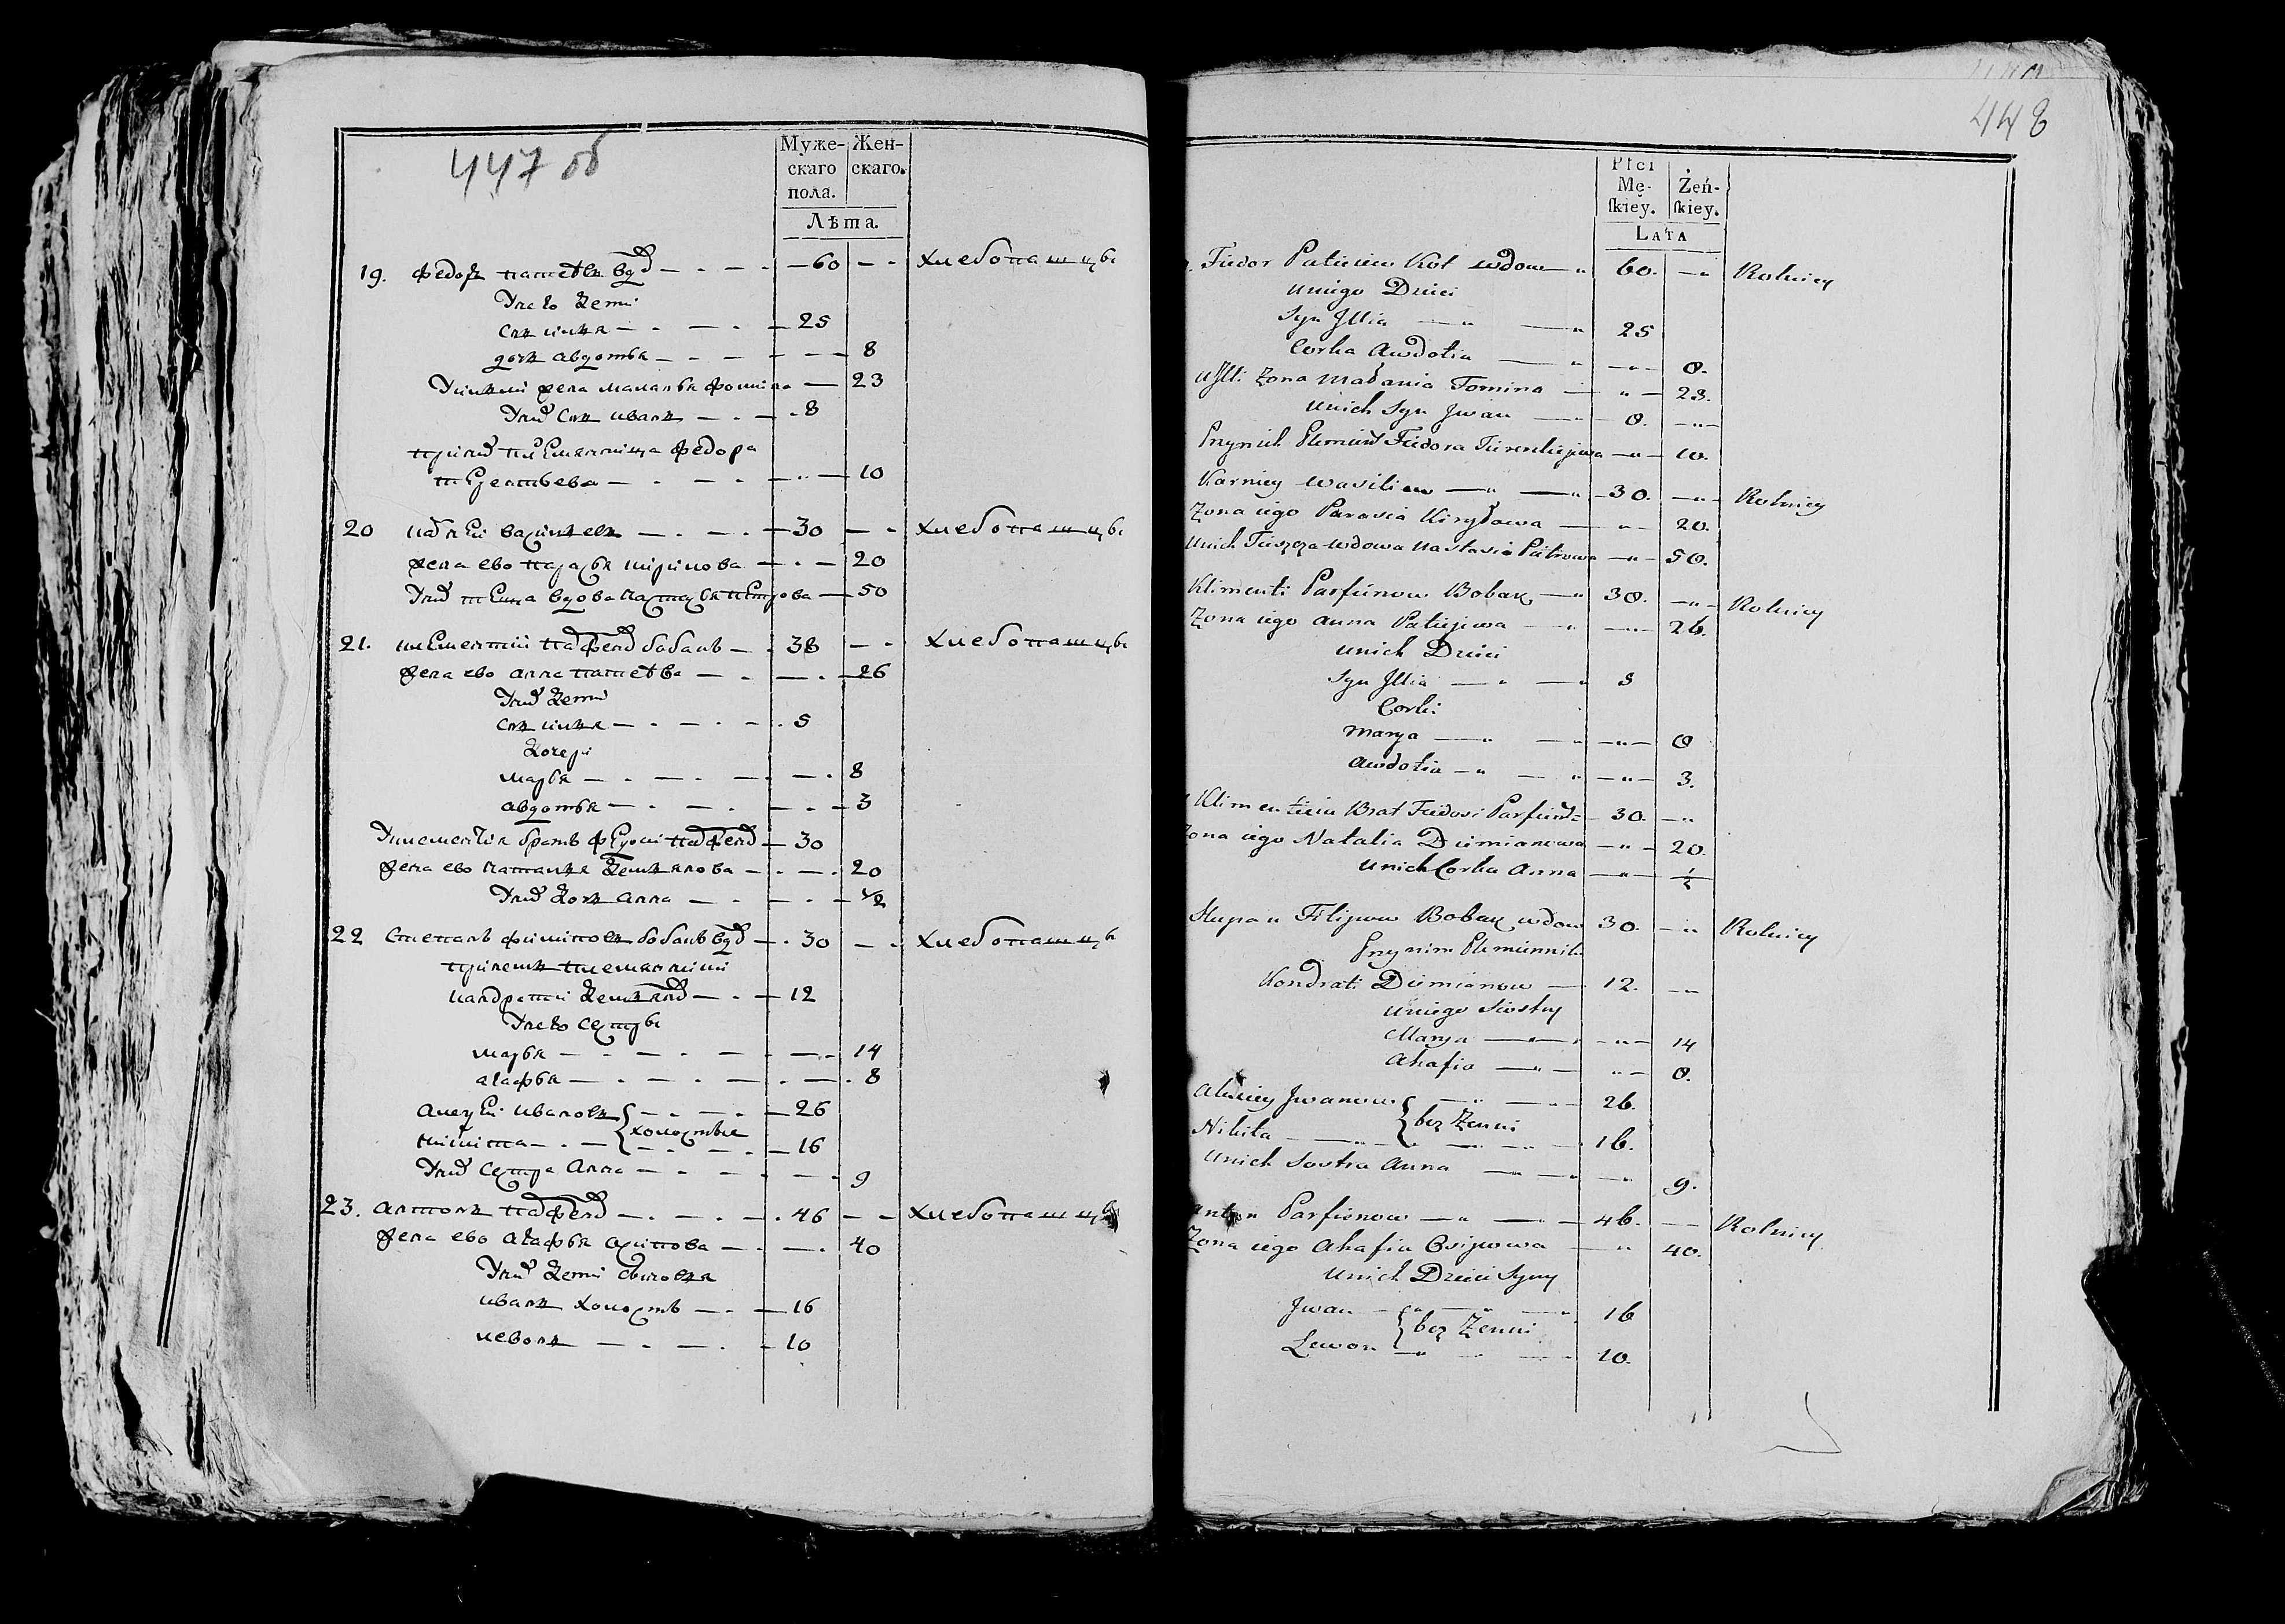 447 об
Муже-
скаго
пола.
Жен-
скаго.
Лѣта.
19. федоръ патеевъ вд — 60 — хлебопашцы
У него дети
Снъ илья — 25
дочъ авдотья — 8
У ильи жена маланья фомина — 23
У них Снъ иванъ — 8
при них племянница федора
терентьева — 10
20 карней василевъ — 30 — хлебопашцы
жена ево парасья кирилова — 20
У них теща вдова настасья петрова — 50
21. клементий парфенов бобакъ — 38 — хлебопашцы
жена ево анна патеева — 26
У них дети
Снъ илья — 5
дочери
марья — 8
авдотья — 3
У клементия братъ федосий парфенов — 30
жена ево наталья демьянова — 20
У них дочъ анна — 1/2
22 степанъ филиповъ бобакъ вд — 30 — хлебопашцы
при немъ племянники
кандратей демьянов — 12
У него сестры
марья — 14
агафья — 8
алексей ивановъ — 26
холостые
никита — 16
У них сестра анна — 9
23. антонъ парфенов — 46 — хлебопашцы
жена ево агафья осипова — 40
У них дети сыновья
иванъ холостъ — 16
левонъ — 10
448
Płci
Mę-
skiey.
Żeń-
skiey.
LATA
Fiedor Patieiew Kot wdow — 60. — Rolnicy
Uniego Dzieci
Syn Jllia — 25
Corka Awdotia — 8.
U Jlli Zona Małania Fomina — 23.
Unich Syn Jwan — 8.
Przynich Plemien Fiedora Tierentiejewa — 10.
Karniey Wasiliew — 30. — Rolnicy
Zona iego Parasia Kiryłowa — 20.
Unich Tieszcza wdowa Nastasia Pietrowa — 50.
Klimenti Parfienow Bobak — 38. — Rolnicy
Zona iego Anna Patiejewa — 26.
Unich Dzieci
Syn Jllia — 5
Corki:
Marya — 8
Awdotia — 3.
Klimentieia Brat Fiedosi Parfienow — 30. —
Zona iego Natalia Diemianowa — 20.
Unich Corka Anna — 1/2
Stepan Filipow Bobak wdow 30. — Rolnicy
Przynim Plemienniki
Kondrati Diemianow — 12. —
Uniego Siostry
Marya — 14
Ahafia — 8.
Alexiey Jwanow — 26.
bez Zenni
Nikita — 16.
Unich Sostra Anna — 9.
Anton Parfienow — 46. — Rolnicy
Zona iego Ahafia Osipowa — 40.
Unich Dzieci Syny
Jwan — 16
bez Zenni
Lewon — 10.